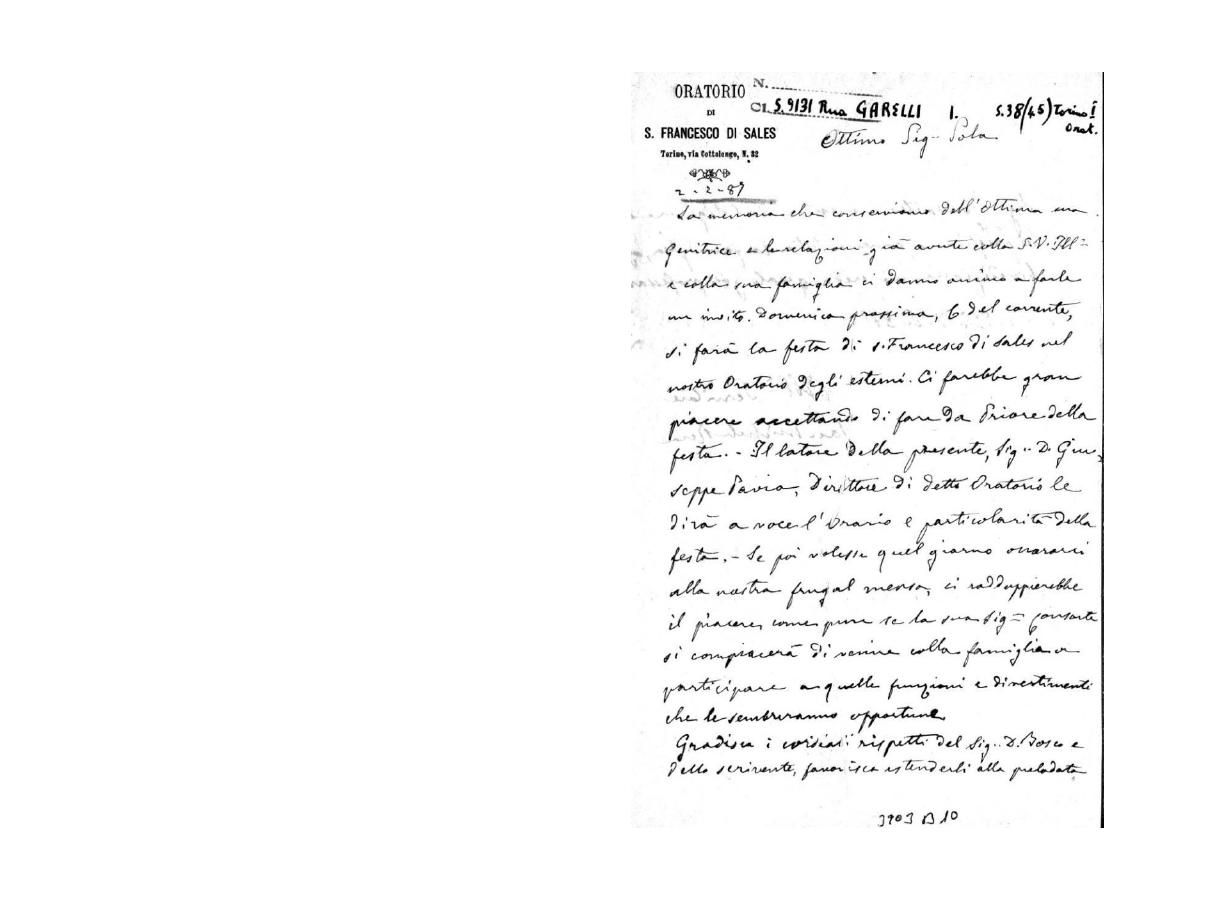 ORATORIO
DI
S. FRANCESCO DI SALES
Torino, via Cottolengo, N. 32
N.
Cl. S.9131 Rua GARELLI 1. S.38(45) Torino I
Orat.
Ottimo Sig. Pola
2-2-87
La memoria che conserviamo dell'Ottima sua
Genitrice e le relazioni già avute colla S.V. Ill
e colla sua famiglia ci danno animo a farle
un invito. Domenica prossima, 6 del corrente,
si farà la festa di S. Francesco di Sales nel
nostro Oratorio degli esterni. Ci farebbe gran
piacere accettando di fare da Priore della
festa. - Il latore della presente, Sig. D. Giu-
seppe Pavia, Direttore di detto Oratorio le
dirà a voce l'Orario e particolarità della
festa. - Se poi volesse quel giorno onorarci
alla nostra frugal mensa, ci raddoppierebbe
il piacere, come pure se la sua Sig consorte
si compiacerà di venire colla famiglia a
participare a quelle funzioni e divertimenti
che le sembreranno opportune.
Gradisca i cordiali rispetti del Sig. D. Bosco e
dello scrivente, favorisca estenderli alla prelodata
3903 B 10